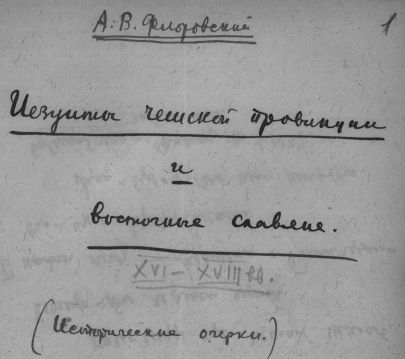 А.В. Флоровский
1
Иезуиты чешской провинции
и
восточные славяне.
XVI – XVIII вв.
(Исторические очерки.)